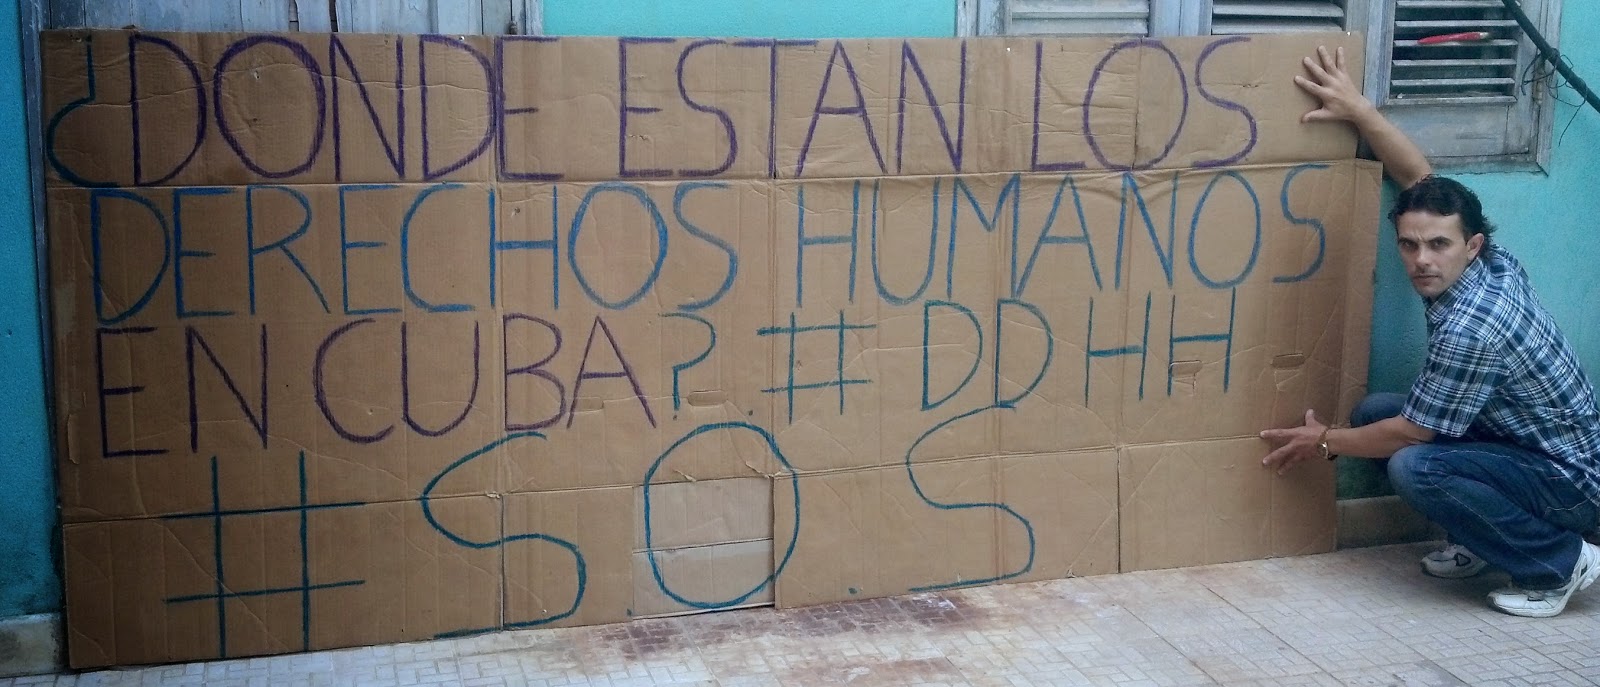 ¿DONDE ESTAN LOS
DERECHOS HUMANOS
EN CUBA? # DDHH
# S O S